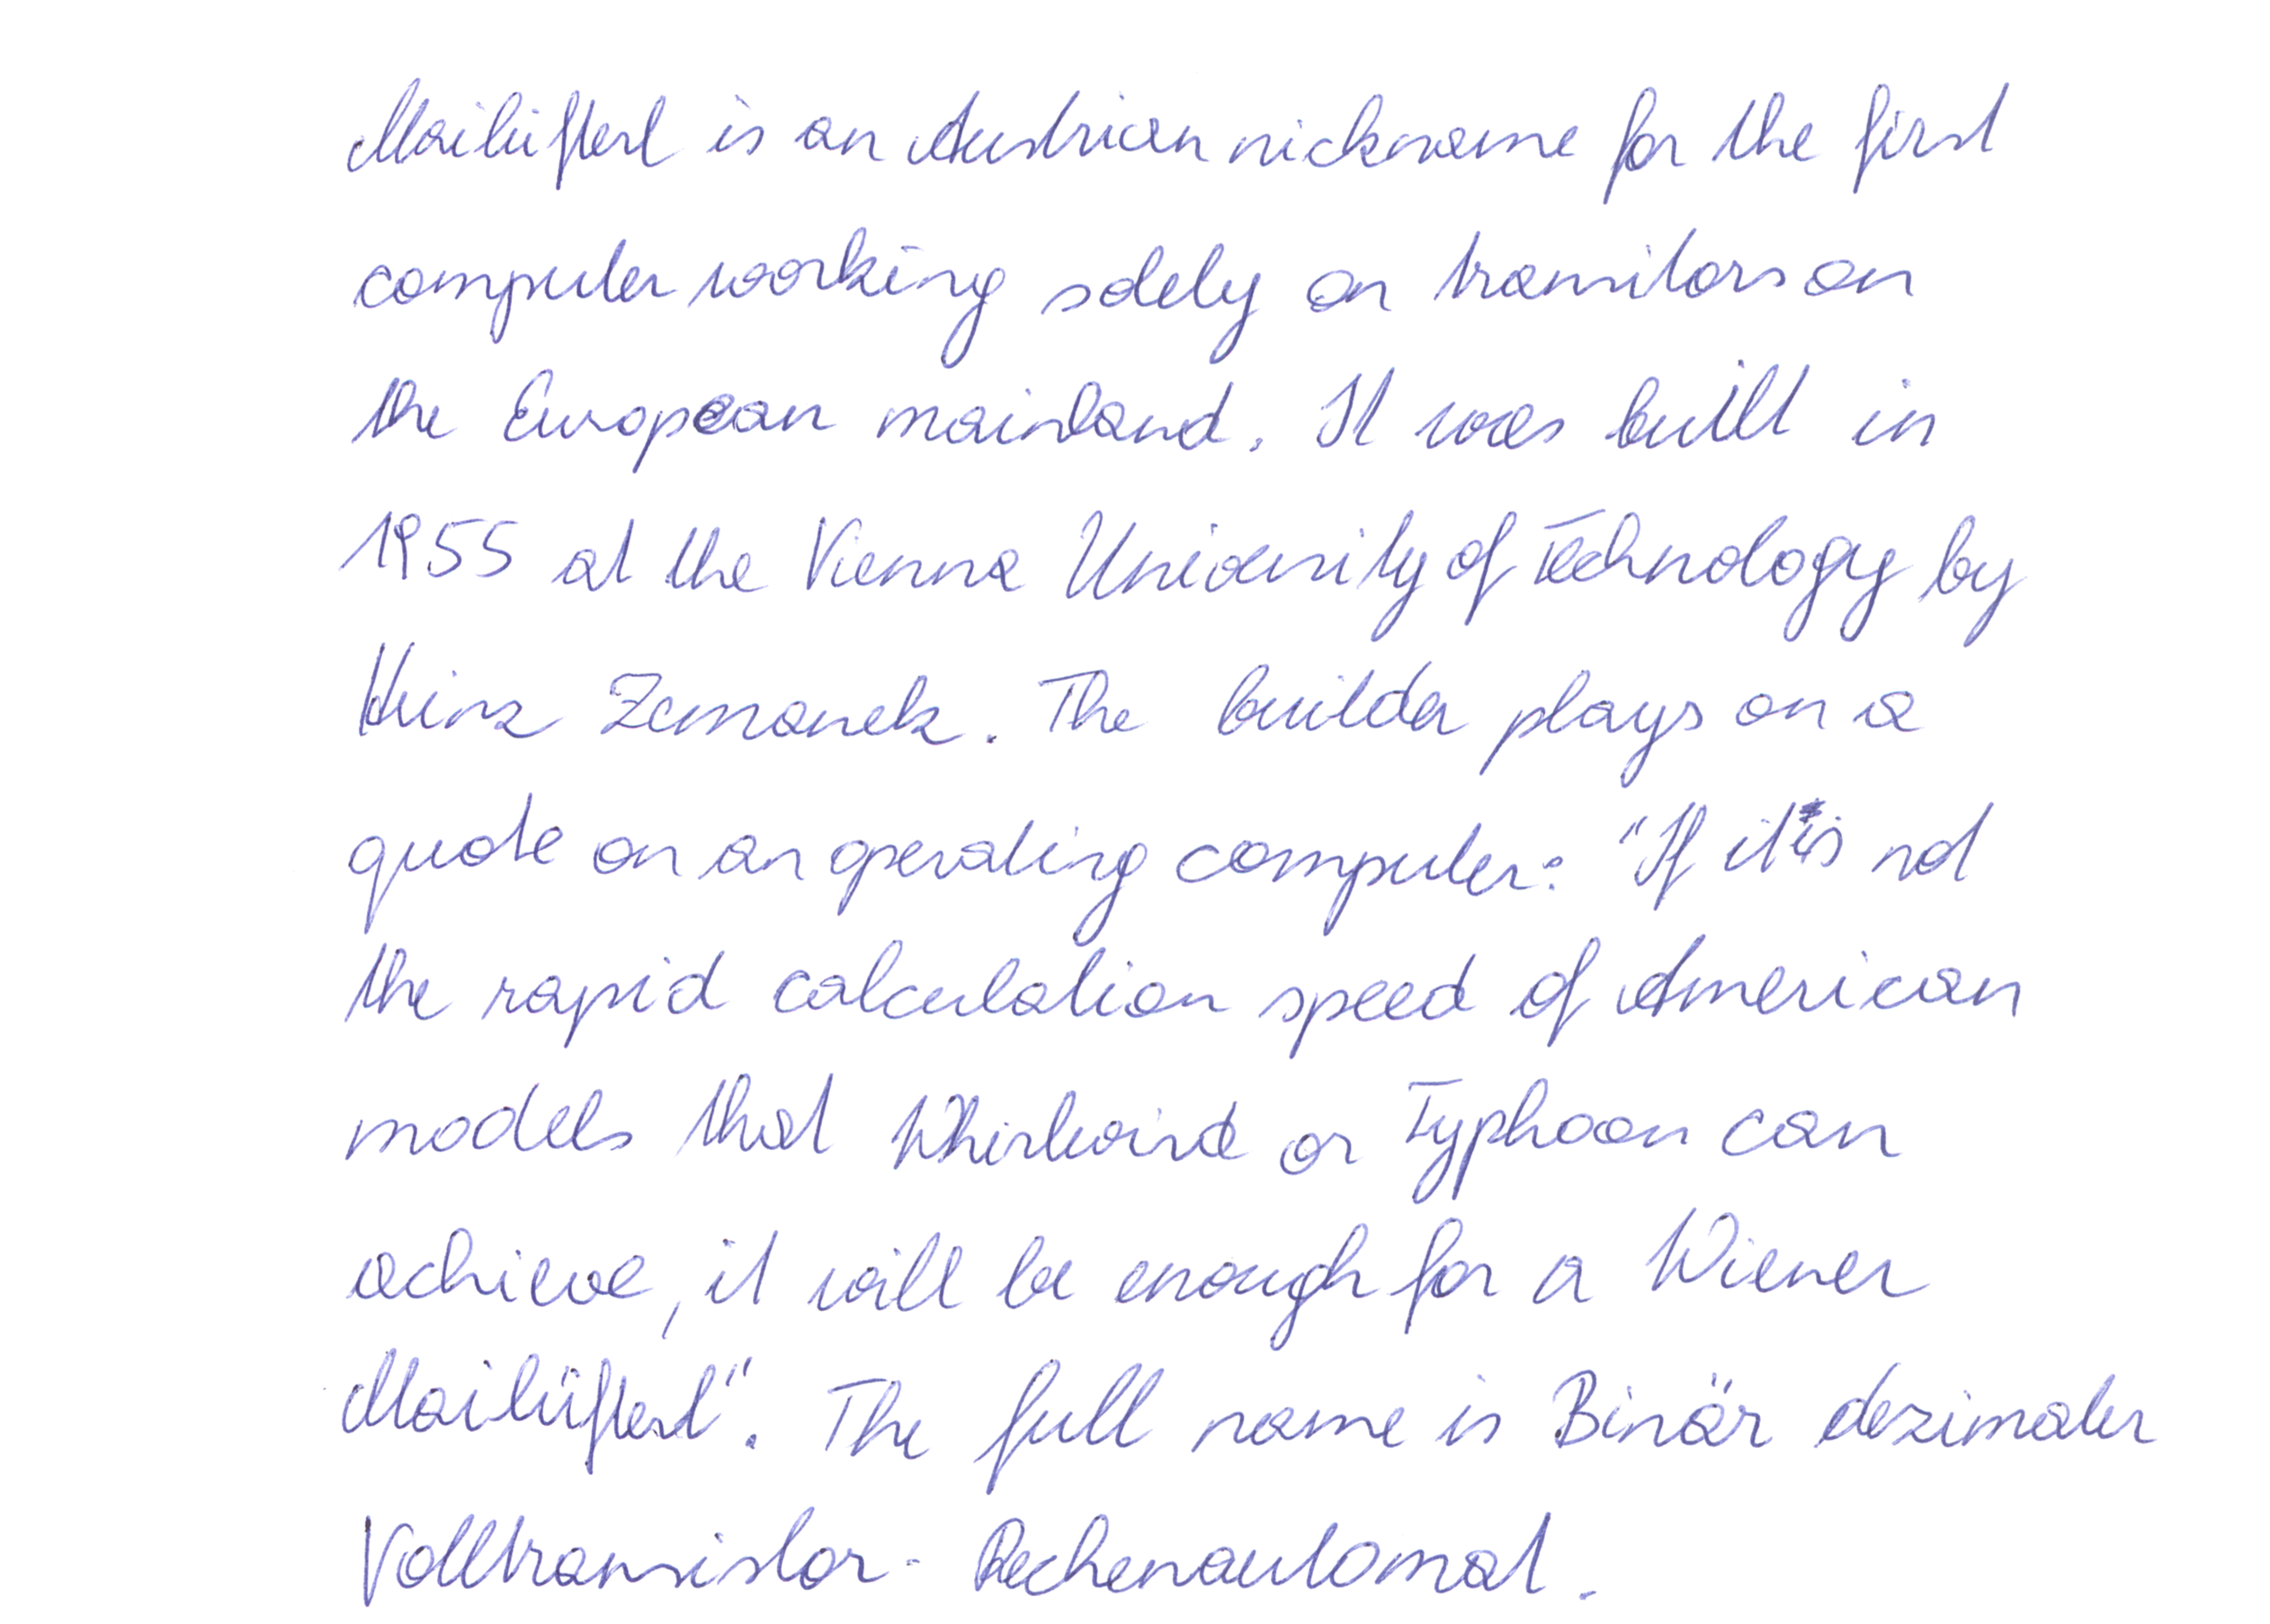 Mailüfterl is an Austrian nickname for the first
computer working solely on transitors on
the European mainland. It was built in
1955 at the Vienna University of Technology by
Heinz Zemanek. The builder plays on a
quote on an operating computer: "If it is not
the rapid calculation speed of American
models that Whirlwind or Typhoon can
achieve, it will be enough for a Wiener
Mailüfterl". The full name is Binär dezimaler
Volltransistor-Rechenautomat.